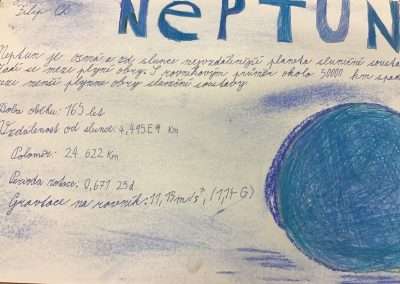 Filip Ch.
NEPTUN
Neptun je osmá a od slunce nejvzdálenější planeta sluneční soustav
řadí se mezi plyné obry. S rovníkovým průměr okolo 50000 km spad
mezi menší plynné obry sluneční soustavy.
Doba oběhu: 165 let
Vzdálenost od slunce: 4,495E9 Km
Poloměr: 24 622 Km
Perioda rotace: 0,671 25d
Gravitace na rovník: 11,15m/s², (1,14 G)